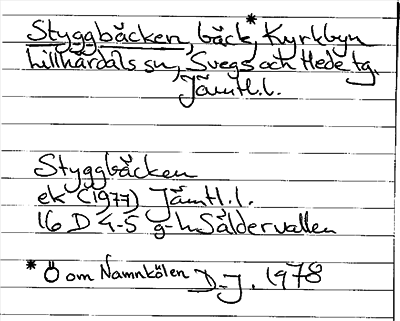 Styggbäcken, bäck*, Kyrkbyn
Lillhärdals sn, Svegs och Hede tg,
Jämtl.l.
Styggbäcken
ek (1977) Jämtl.l.
16 D 4-5 g-h Såldervallen
* Ö om Namnkölen D-J. 1978